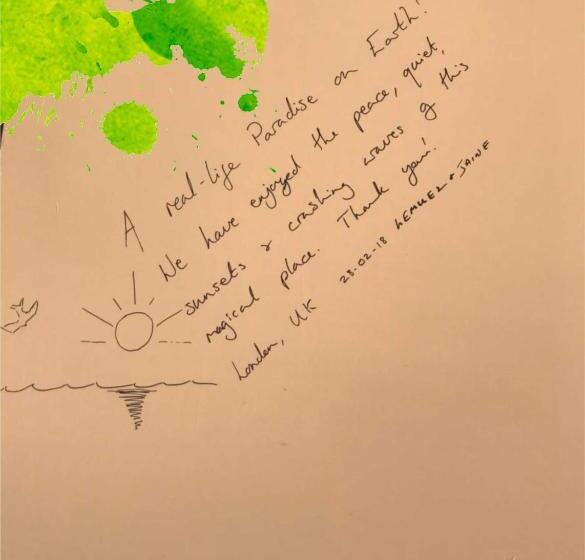 A real-life Paradise on Earth!
We have enjoyed the peace, quiet,
sunsets & crashing waves of this
magical place. Thank you!
London, UK 28-02-18 LEMUEL & JAINE